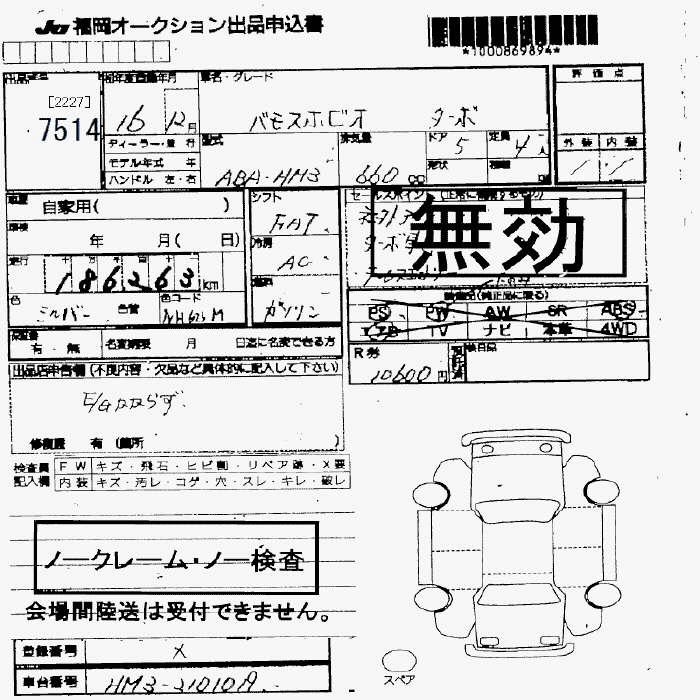 JU 福岡オークション出品申込書
*1000869894*
出品番号 初年度登録年月 車名・グレード 評価点
[2227]
7514 16 12月 バモスホビオ ターボ
ディーラー・並行 型式 排気量 ドア 5 定員 4人 外装 内装
モデル年式 年 形状
ハンドル 左・右 ABA-HM3 660 cc
車歴 自家用( ) シフト セールスポイント(正常に機能するもの)
FAT
無効
車検 年 月( 日) 冷房
AC
走行 186263km 燃料
ガソリン
色 シルバー 色替 色コード NH623M
装備品(純正品に限る)
PS PW AW SR ABS
エアB TV ナビ 本革 4WD
保証書 有・無 名変期限 月 日迄に名変できる方
R券 10600円 預託済 後日品
出品店申告欄(不良内容・欠品など具体的に記入して下さい)
E/Gかからず
修復歴 有(箇所 )
検査員 FW キズ・飛石・ヒビ割・リペア跡・X要
記入欄 内装 キズ・汚レ・コゲ・穴・スレ・キレ・破レ
ノークレーム・ノー検査
会場間陸送は受付できません。
登録番号 X
車台番号 HM3-21010A
スペア